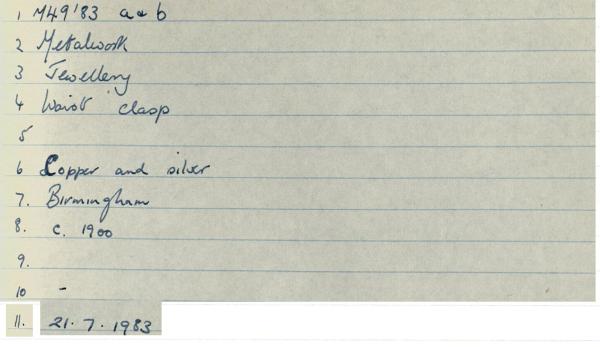 1 M49'83 a & b
2 Metalwork
3 Jewellery
4 Waist clasp
5
6 Copper and silver
7. Birmingham
8. c. 1900
9.
10 -
11. 21.7.1983